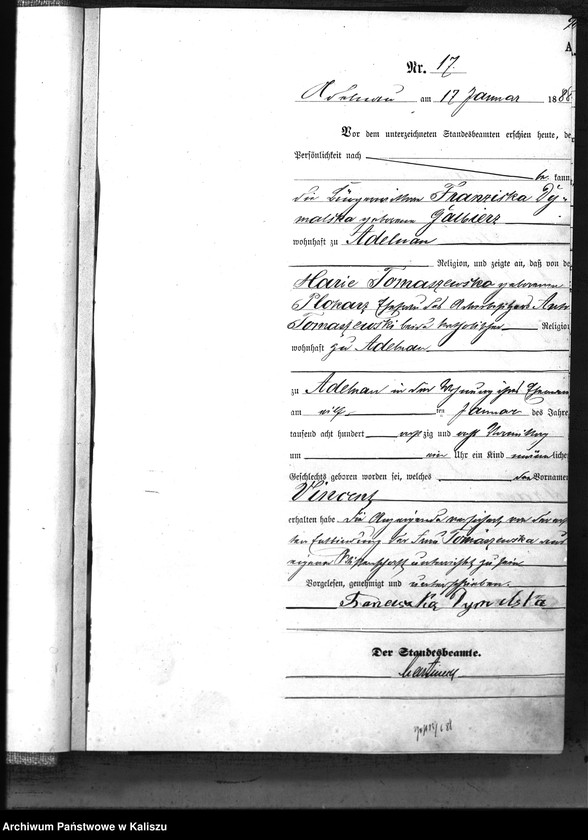 A.
Nr. 17.
Adelnau am 17 Januar 1888
Vor dem unterzeichneten Standesbeamten erschien heute, de
Persönlichkeit nach
be kann
die Franziska Dy-
malska geborene Galbierz
wohnhaft zu Adelnau
Religion, und zeigte an, daß von de
Marie Tomaszewska geborenen
Plokarz Ehefrau des
Tomaszewski beide katholischer Religion
wohnhaft zu Adelnau
zu Adelnau in der Wohnung ihres
am elf ten Januar des Jahres
tausend acht hundert achtzig und acht Vormittag
um ein Uhr ein Kind männlichen
Geschlechts geboren worden sei, welches den Vornamen
Vincent
erhalten habe. Die Anzeigende von der
Entbindung der Frau Tomaszewska aus
eigener Wissenschaft unterrichtet zu sein
Vorgelesen, genehmigt und unterschrieben.
Franciszka Dymalska
Der Standesbeamte.
Archiwum Państwowe w Kaliszu